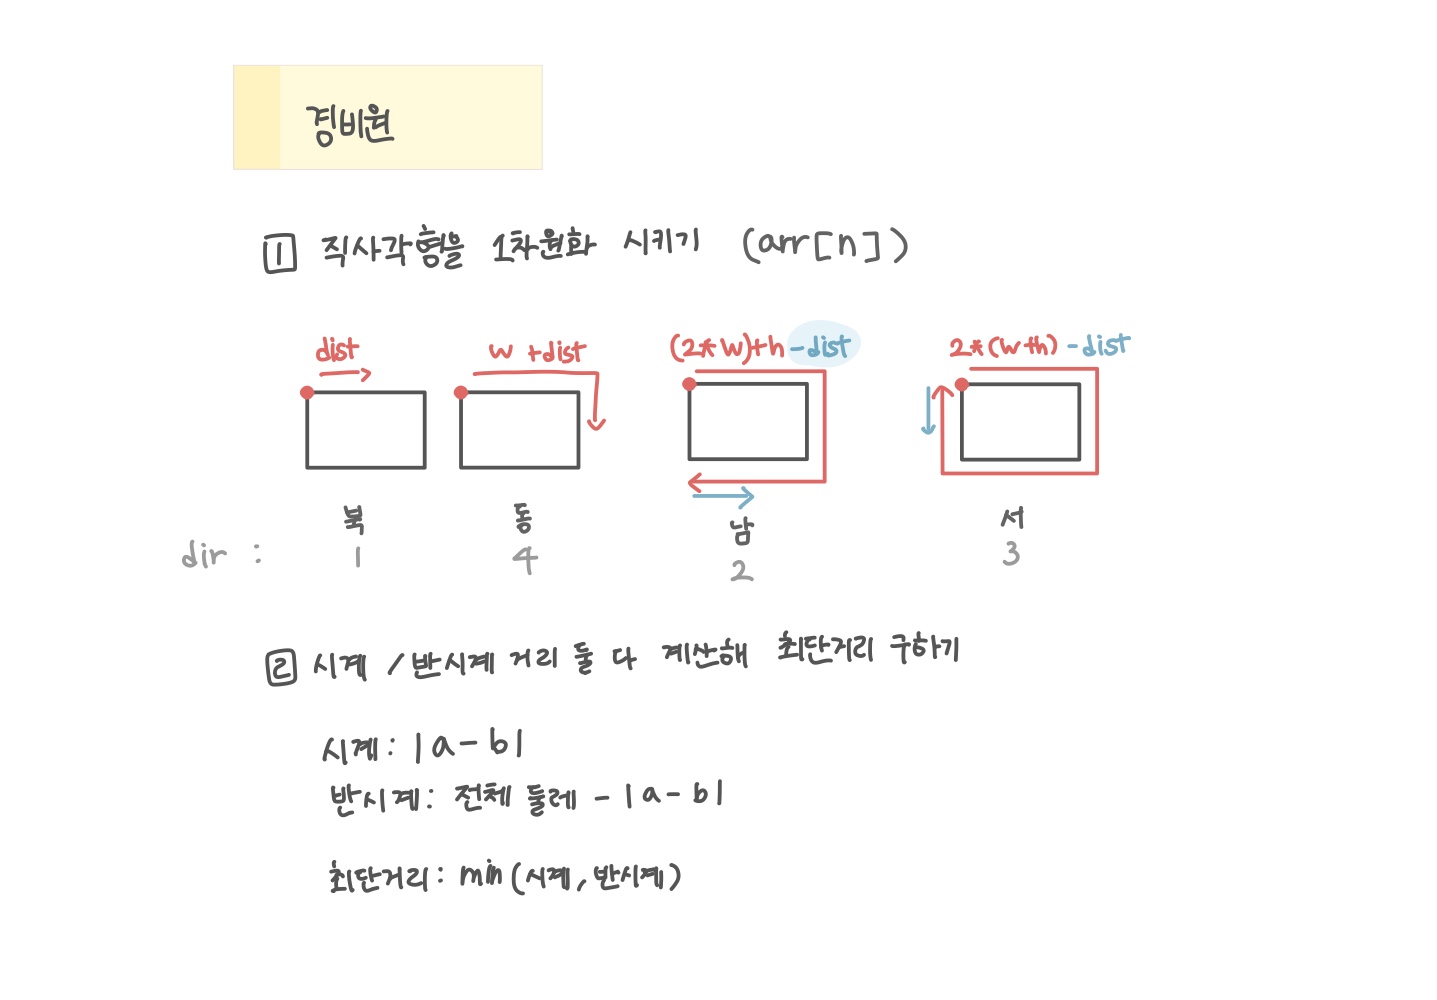 경비원
1 직사각형을 1차원화 시키기 (arr[n])
dist w +dist (2*w)+h -dist 2*(w+h) -dist
북 동 남 서
dir : 1 4 2 3
2 시계 / 반시계 거리 둘 다 계산해 최단거리 구하기
시계: |a-b|
반시계: 전체 둘레 - |a-b|
최단거리: min(시계, 반시계)